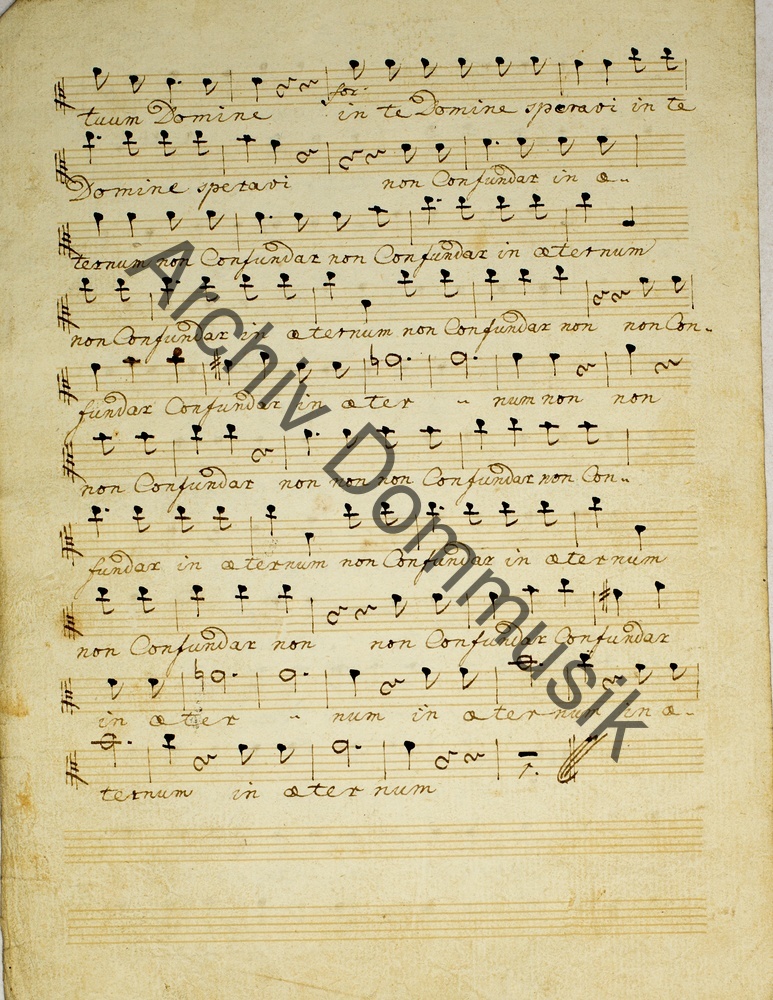 for:
tuum Domine in te Domine speravi in te
Domine speravi non Confundar in æ-
ternum non Confundar non Confundar in æternum
non Confundar in æternum non Confundar non non Con-
fundar Confundar in æter - num non non
non Confundar non non non Confundar non Con-
fundar in æternum non Confundar in æternum
non Confundar non non Confundar Confundar
in æter - num in æternum in æ-
ternum in æternum
Archiv Dommusik